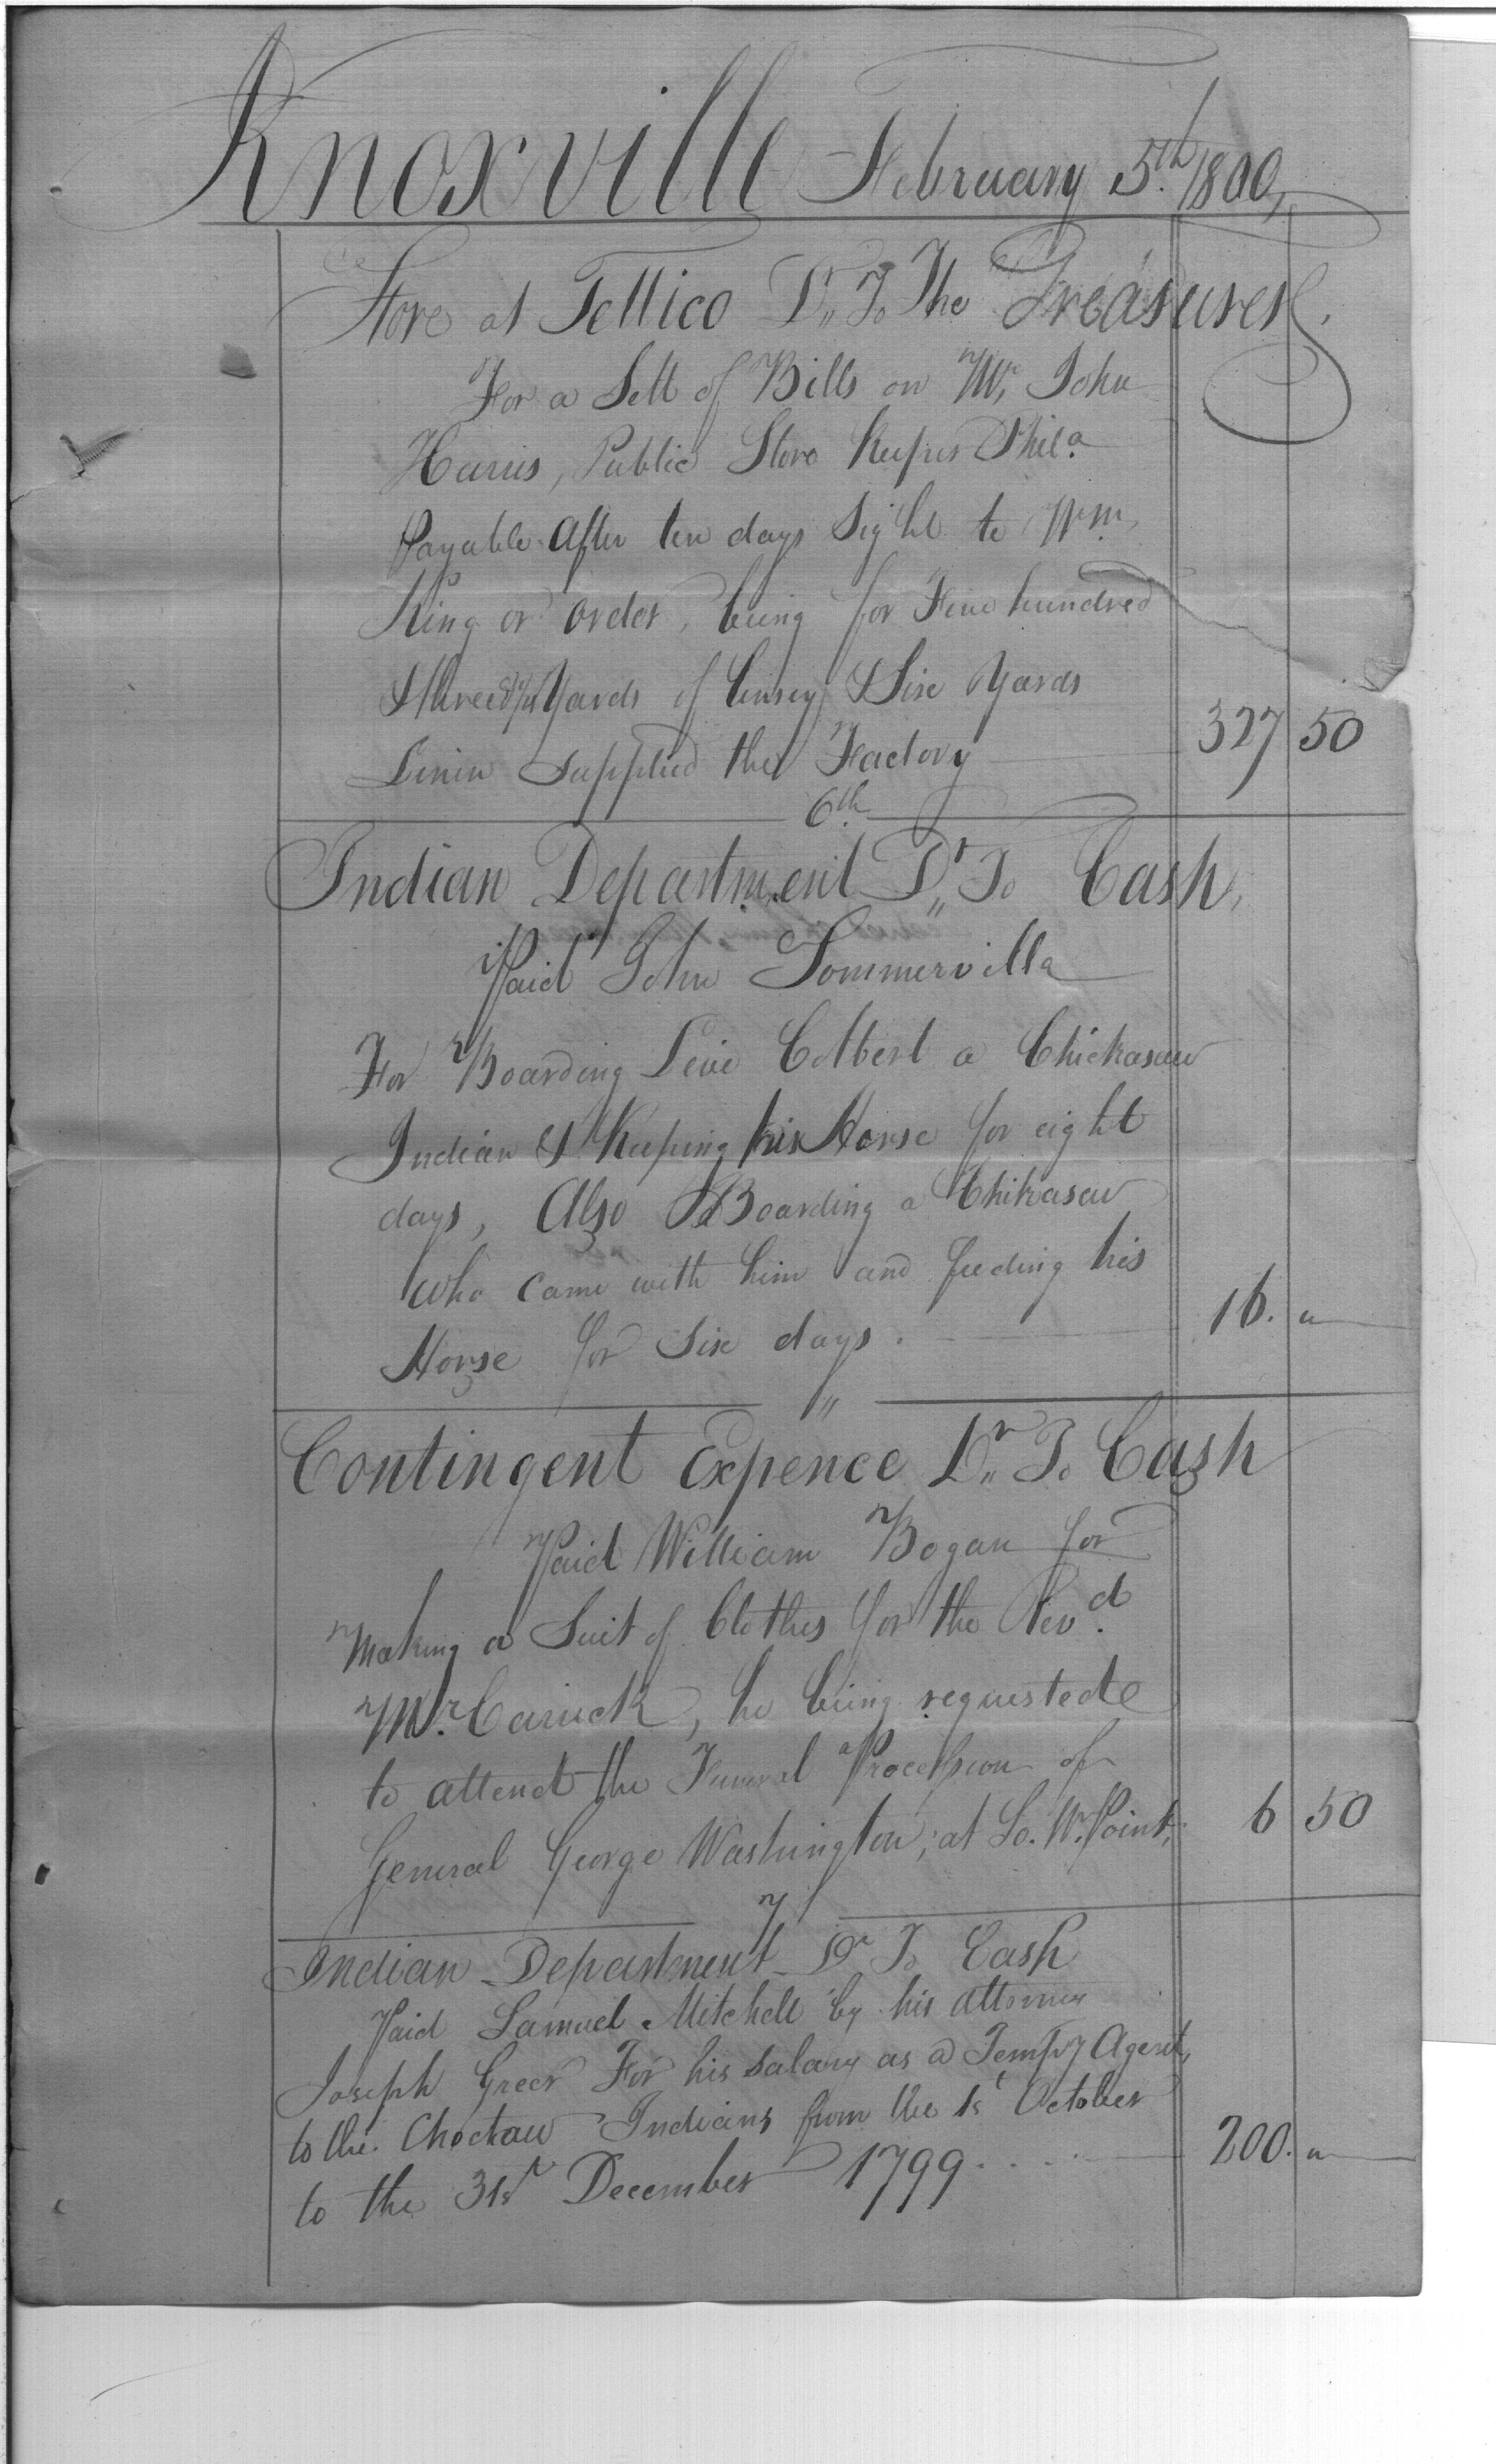 Knoxville February 5th. 1800,
Store at Tellico Dr. To The Treasurer.
For a Sett of Bills on Mr. John
Harris, Public Store Keeper Phila.
Payable After ten days Sight to Wm.
King or order, being for Five hundred
& three Yards of linsey & Six Yards
Linin Supplied the Factory 327 50
6th.
Indian Department Dr. To Cash,
Paid John Sommerville
For Boarding Levi Colbert a Chickasaw
Indian & Keeping his Horse for eight
days, Also Boarding a Chikasaw
Who came with him and feeding his
Horse for Six days. 16. "
"
Contingent Expence Dr. To Cash
Paid William Bogan for
Making a Suit of Clothes for the Revd.
Mr. Carrick, he being requested
to attend the Funeral Procession of
General George Washington, at So. W. Point, 6 50
7
Indian Department Dr To Cash
Paid Samuel Mitchell by his attorney
Joseph Greer For his Salary as a Tempy Agent,
to the Choctaw Indians from the 1st October
to the 31st December 1799 200. "